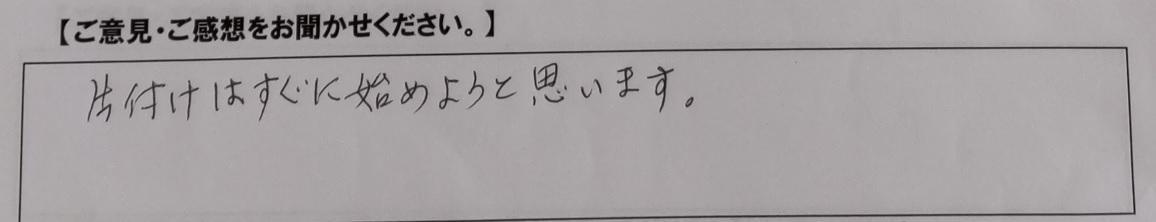 【ご意見・ご感想をお聞かせください。】
片付けはすぐに始めようと思います。